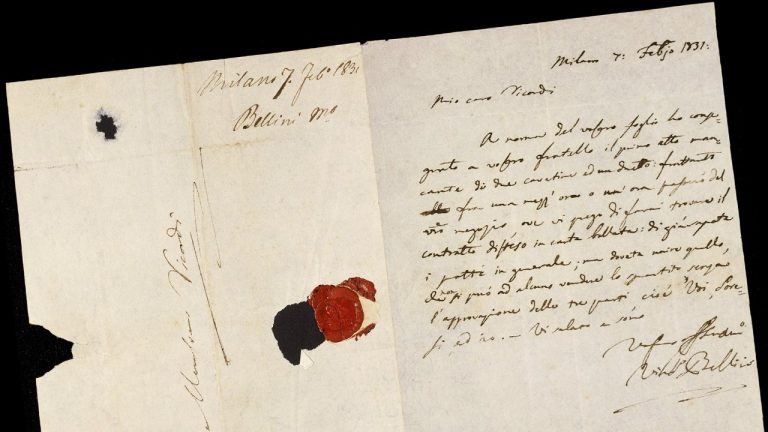 Milano 7. Feb.º 183
Bellini Mº
Ricordi
Milano 7: Febjo 1831:
Mio caro Ricordi
A norma del vostro foglio ho conse-
gnato a vostro fratello il primo atto man-
cante di due cavatine ed un duetto:
fra una mezz' ora o un' ora passerò dal
vro negozio ove vi prego di farmi trovare il
contratto disteso in carta bollata: di già sapete
i patti in generale, ma dovete unire quello,
che si può ad alcuno vendere lo spartito senza
l'approvazione delle tre parti cioè Voi,
ed io. — Vi saluto e sono
Vostro
Bellini